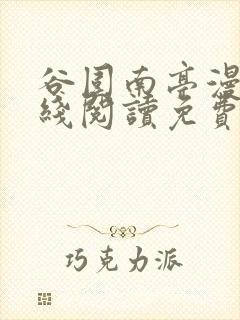 谷围南亭漫
綫閱讀免費
巧克力派